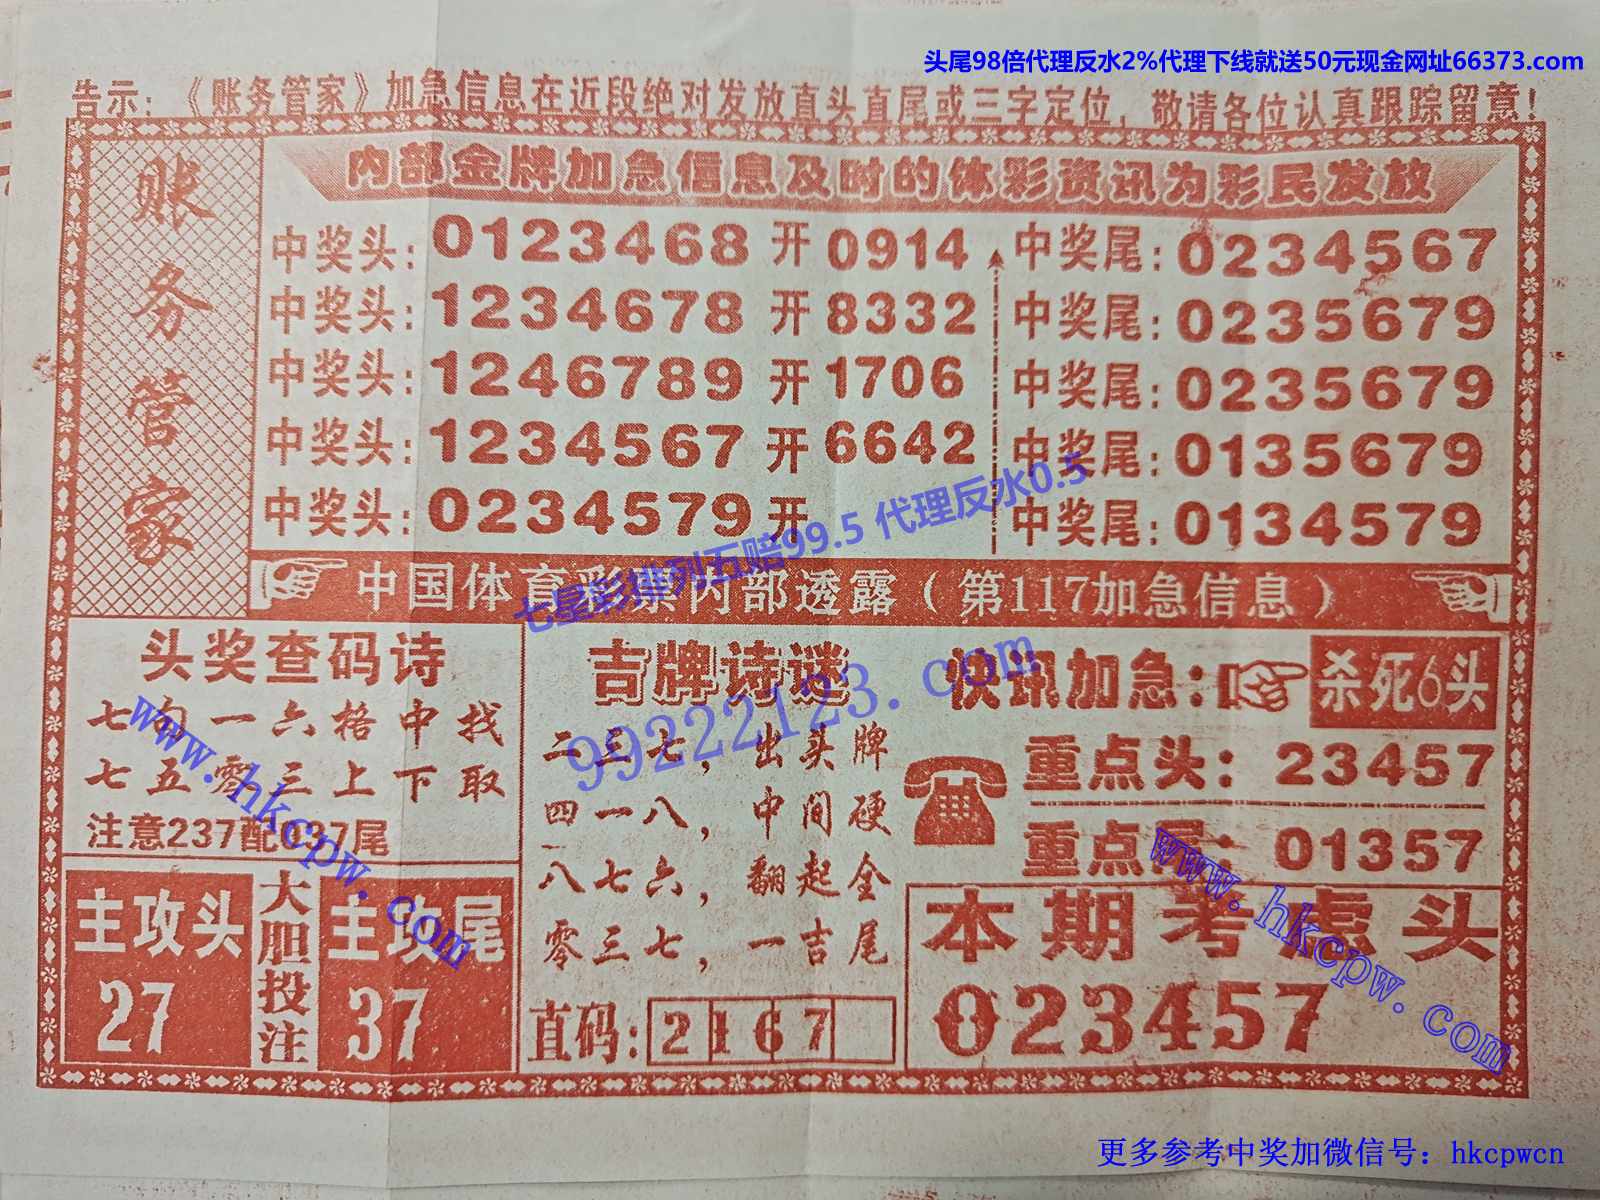 头尾98倍代理反水2%代理下线就送50元现金网址66373.com
告示：《账务管家》加急信息在近段绝对发放直头直尾或三字定位，敬请各位认真跟踪留意！
账务管家
内部金牌加急信息及时的体彩资讯为彩民发放
中奖头：0123468 开 0914 中奖尾：0234567
中奖头：1234678 开 8332 中奖尾：0235679
中奖头：1246789 开 1706 中奖尾：0235679
中奖头：1234567 开 6642 中奖尾：0135679
中奖头：0234579 开 中奖尾：0134579
七星彩排列五赔99.5 代理反水0.5
中国体育彩票内部透露（第117加急信息）
头奖查码诗
七句一六格中找
七五零三上下取
注意237配037尾
主攻头
27
大胆投注
主攻尾
37
吉牌诗谜
二三七，出头牌
四一八，中间硬
八七六，翻起全
零三七，一吉尾
直码：2167
快讯加急：杀死6头
重点头：23457
重点尾：01357
本期考虑头
023457
99222123.com
www.hkcpw.com
www.hkcpw.com
更多参考中奖加微信号：hkcpwcn